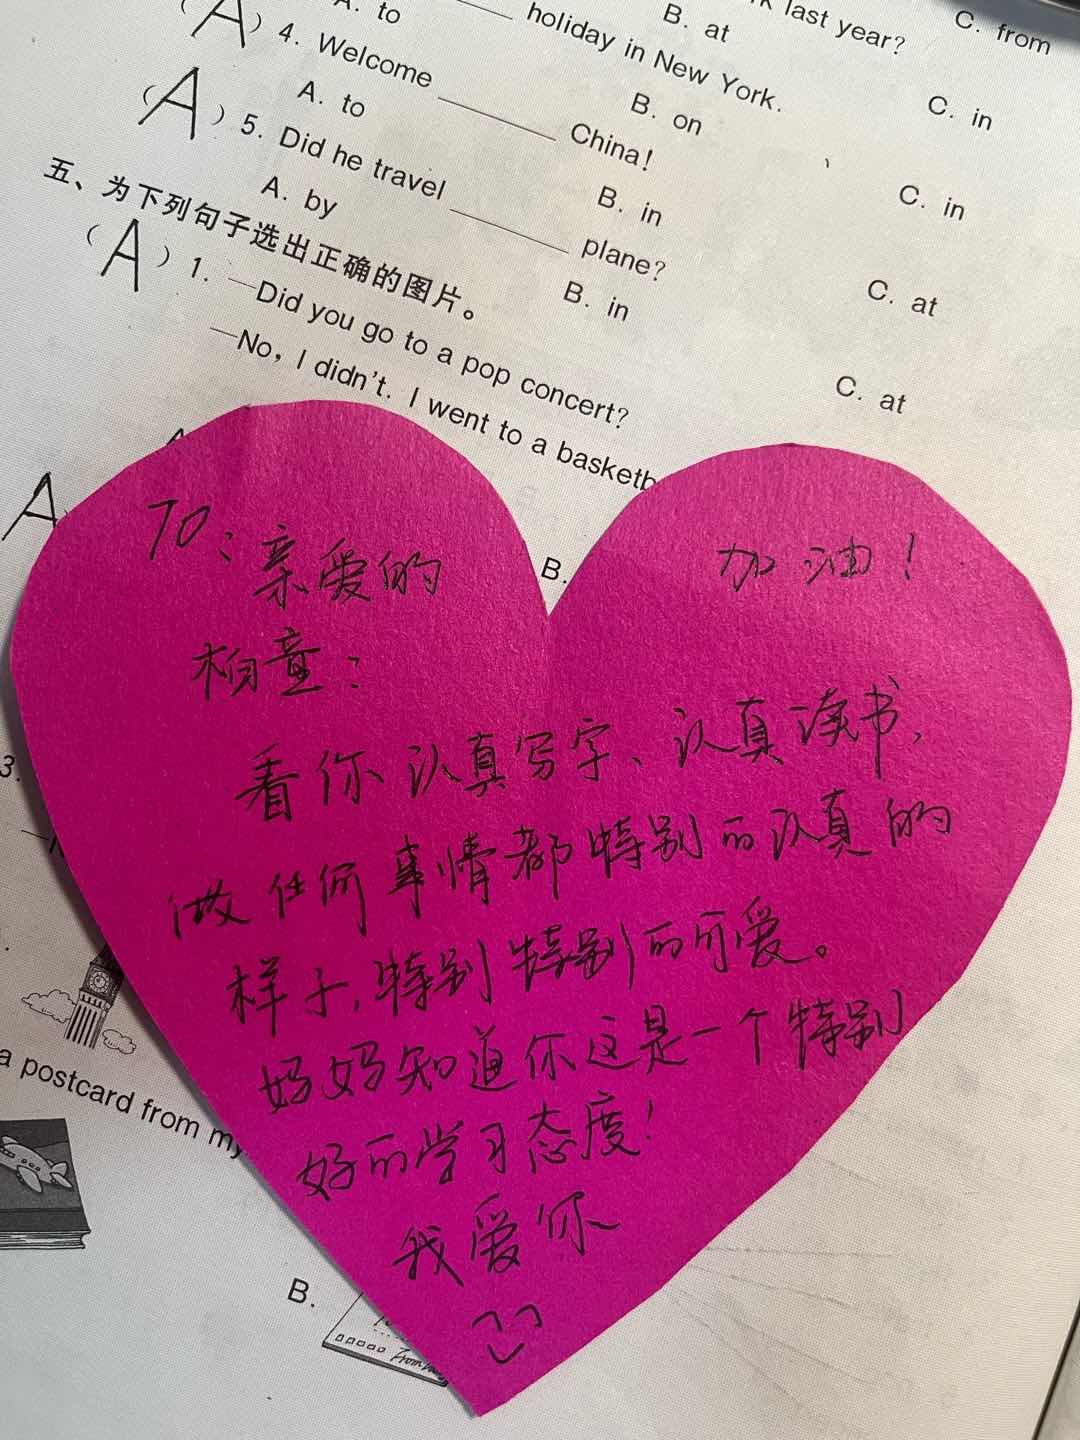 A. to
B. at
C. from
last year?
holiday in New York.
(A) 4. Welcome ______ China!
A. to
B. on
C. in
(A) 5. Did he travel ______ plane?
A. by
B. in
C. in
五、为下列句子选出正确的图片。
B. in
C. at
(A) 1. —Did you go to a pop concert?
—No, I didn't. I went to a basketb
C. at
A
B.
TO：亲爱的
柏童：
加油！
看你认真写字、认真读书，
做任何事情都特别的认真的
样子，特别特别的可爱。
妈妈知道你这是一个特别
好的学习态度！
我爱你
3.
a postcard from my
B.
From